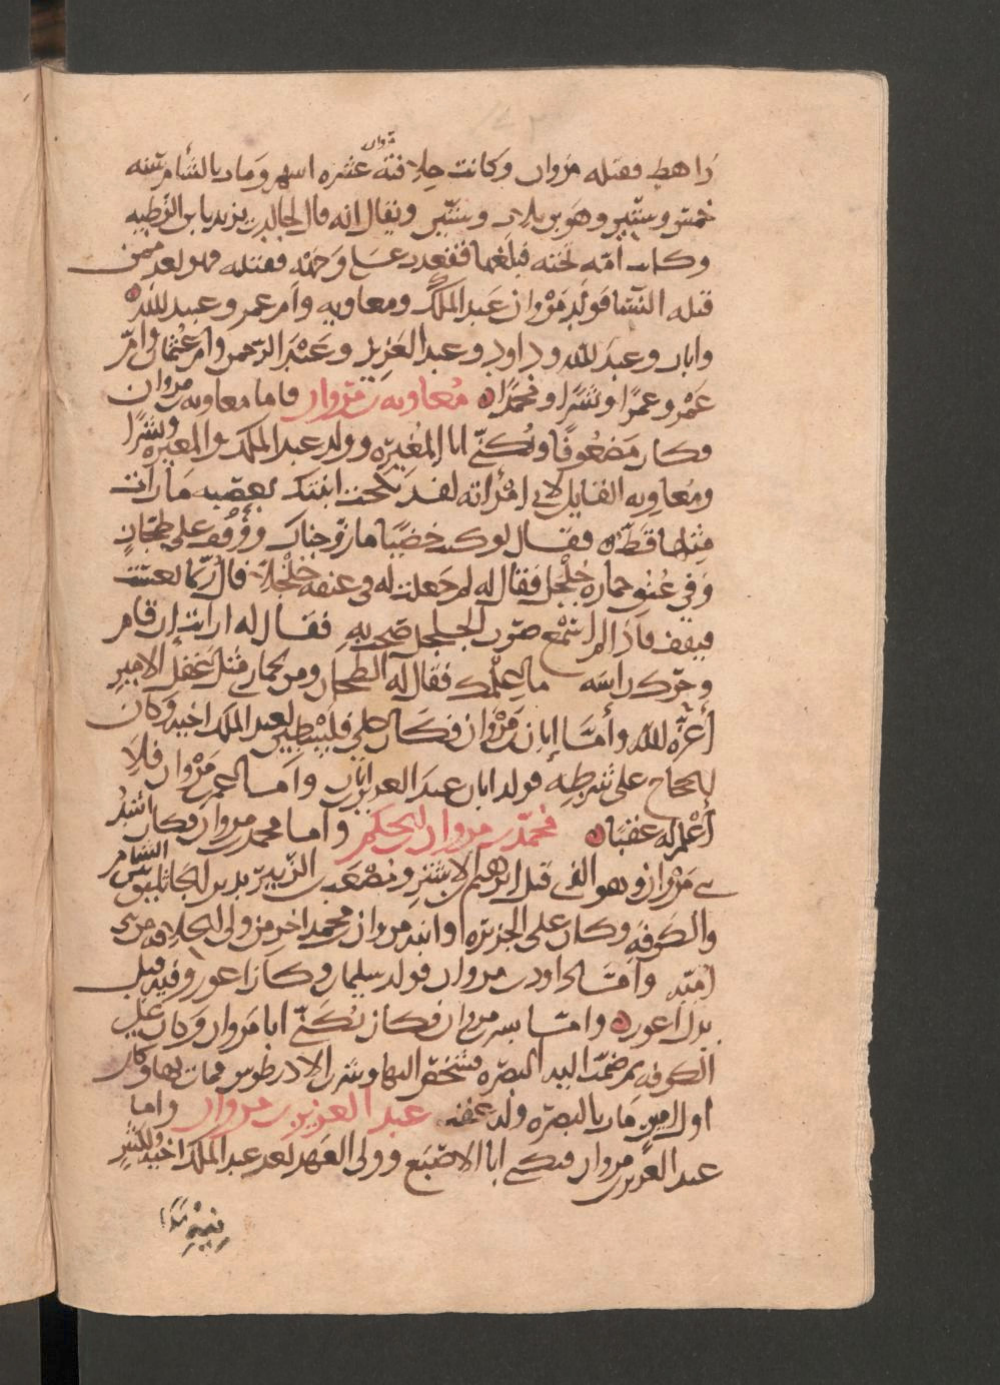 مروان
راهط فقتله مروان وكانت خلافته عشره اشهر ومات بالشام سنه
خمس وستين وهو بن ثلاث وستين ويقال انه قال لخالد بن يزيد يا بن الرطبه
وكانت امه تحته فبلغها فقعدت على وجهه فقتلته فهو يعد فيمن
قتله النسا فولد مروان عبد الملك ومعاويه وام عمر وعبيد الله
وابان وعبد الله وداود وعبد العزيز وعبد الرحمن وام عثمان وام
عمرو وعمرا وبشرا ومحمدا معاويه بن مروان فاما معاويه بن مروان
فكان مضعوفا ويكنى ابا المغيره وولد عبد الملك والمغيره وبشرا
ومعاويه القايل لابي امراته لقد نكحت ابنتك بعصبه ما رات
مثلها قط فقال لو كنت خصيا ما زوجناك ووقف على طحان
وفي عنق حماره جلجل فقال له لم جعلت له في عنقه جلجلا قال ربما نعست
فيقف فاذا لم اسمع صوت الجلجل صحت به فقال له ارايت ان قام
وحرك راسه ما علمك فقال له الطحان ومن لحماري مثل عقل الامير
اعزه الله واما ابان بن مروان فكان على فلسطين لعبد الملك اخيه وكان
الحجاج على شرطه فولد ابان عبد العزيز بن ابان واما عمر بن مروان فلا
اعلم له عقبا محمد بن مروان بن الحكم واما محمد بن مروان فكان اشد
بني مروان وهو الذي قتل ابرهيم بن الاشتر ومصعب بن الزبير بدير الجاثليق بين الشام
والكوفه وكان على الجزيره وابنه مروان بن محمد اخر من ولي الخلافه من بني
اميه واما داود بن مروان فولد سليمان وكان اعور وفيه قيل
بدل اعور واما بشر بن مروان فكان يكنى ابا مروان وكان على
الكوفه ثم ضمت اليه البصره فشخص اليها وشرب الاذرطوس فمات بها وكان
اول امير مات بالبصره وله عقب عبد العزيز بن مروان واما
عبد العزيز بن مروان فيكنى ابا الاصبغ وولي العهد بعد عبد الملك اخيه